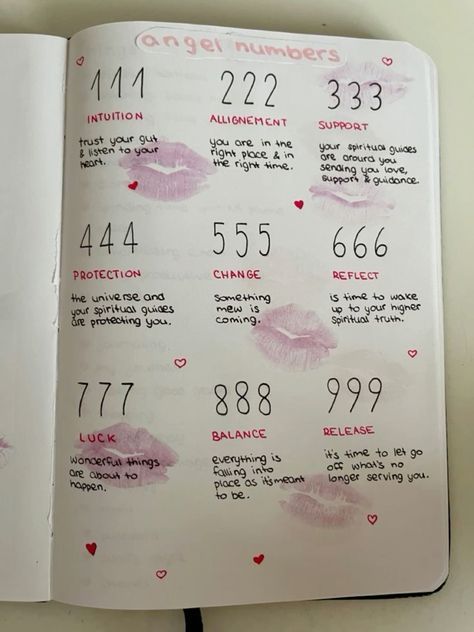 angel numbers
111
INTUITION
trust your gut
& listen to your
heart.
222
ALLIGNEMENT
you are in the
right place & in
the right time.
333
SUPPORT
your spiritual guides
are around you
sending you love,
support & guidance.
444
PROTECTION
the universe and
your spiritual guides
are protecting you.
555
CHANGE
something
mew is
coming.
666
REFLECT
is time to wake
up to your higher
spiritual truth.
777
LUCK
wonderful things
are about to
happen.
888
BALANCE
everything is
falling into
place as it's meant
to be.
999
RELEASE
it's time to let go
off what's no
longer serving you.